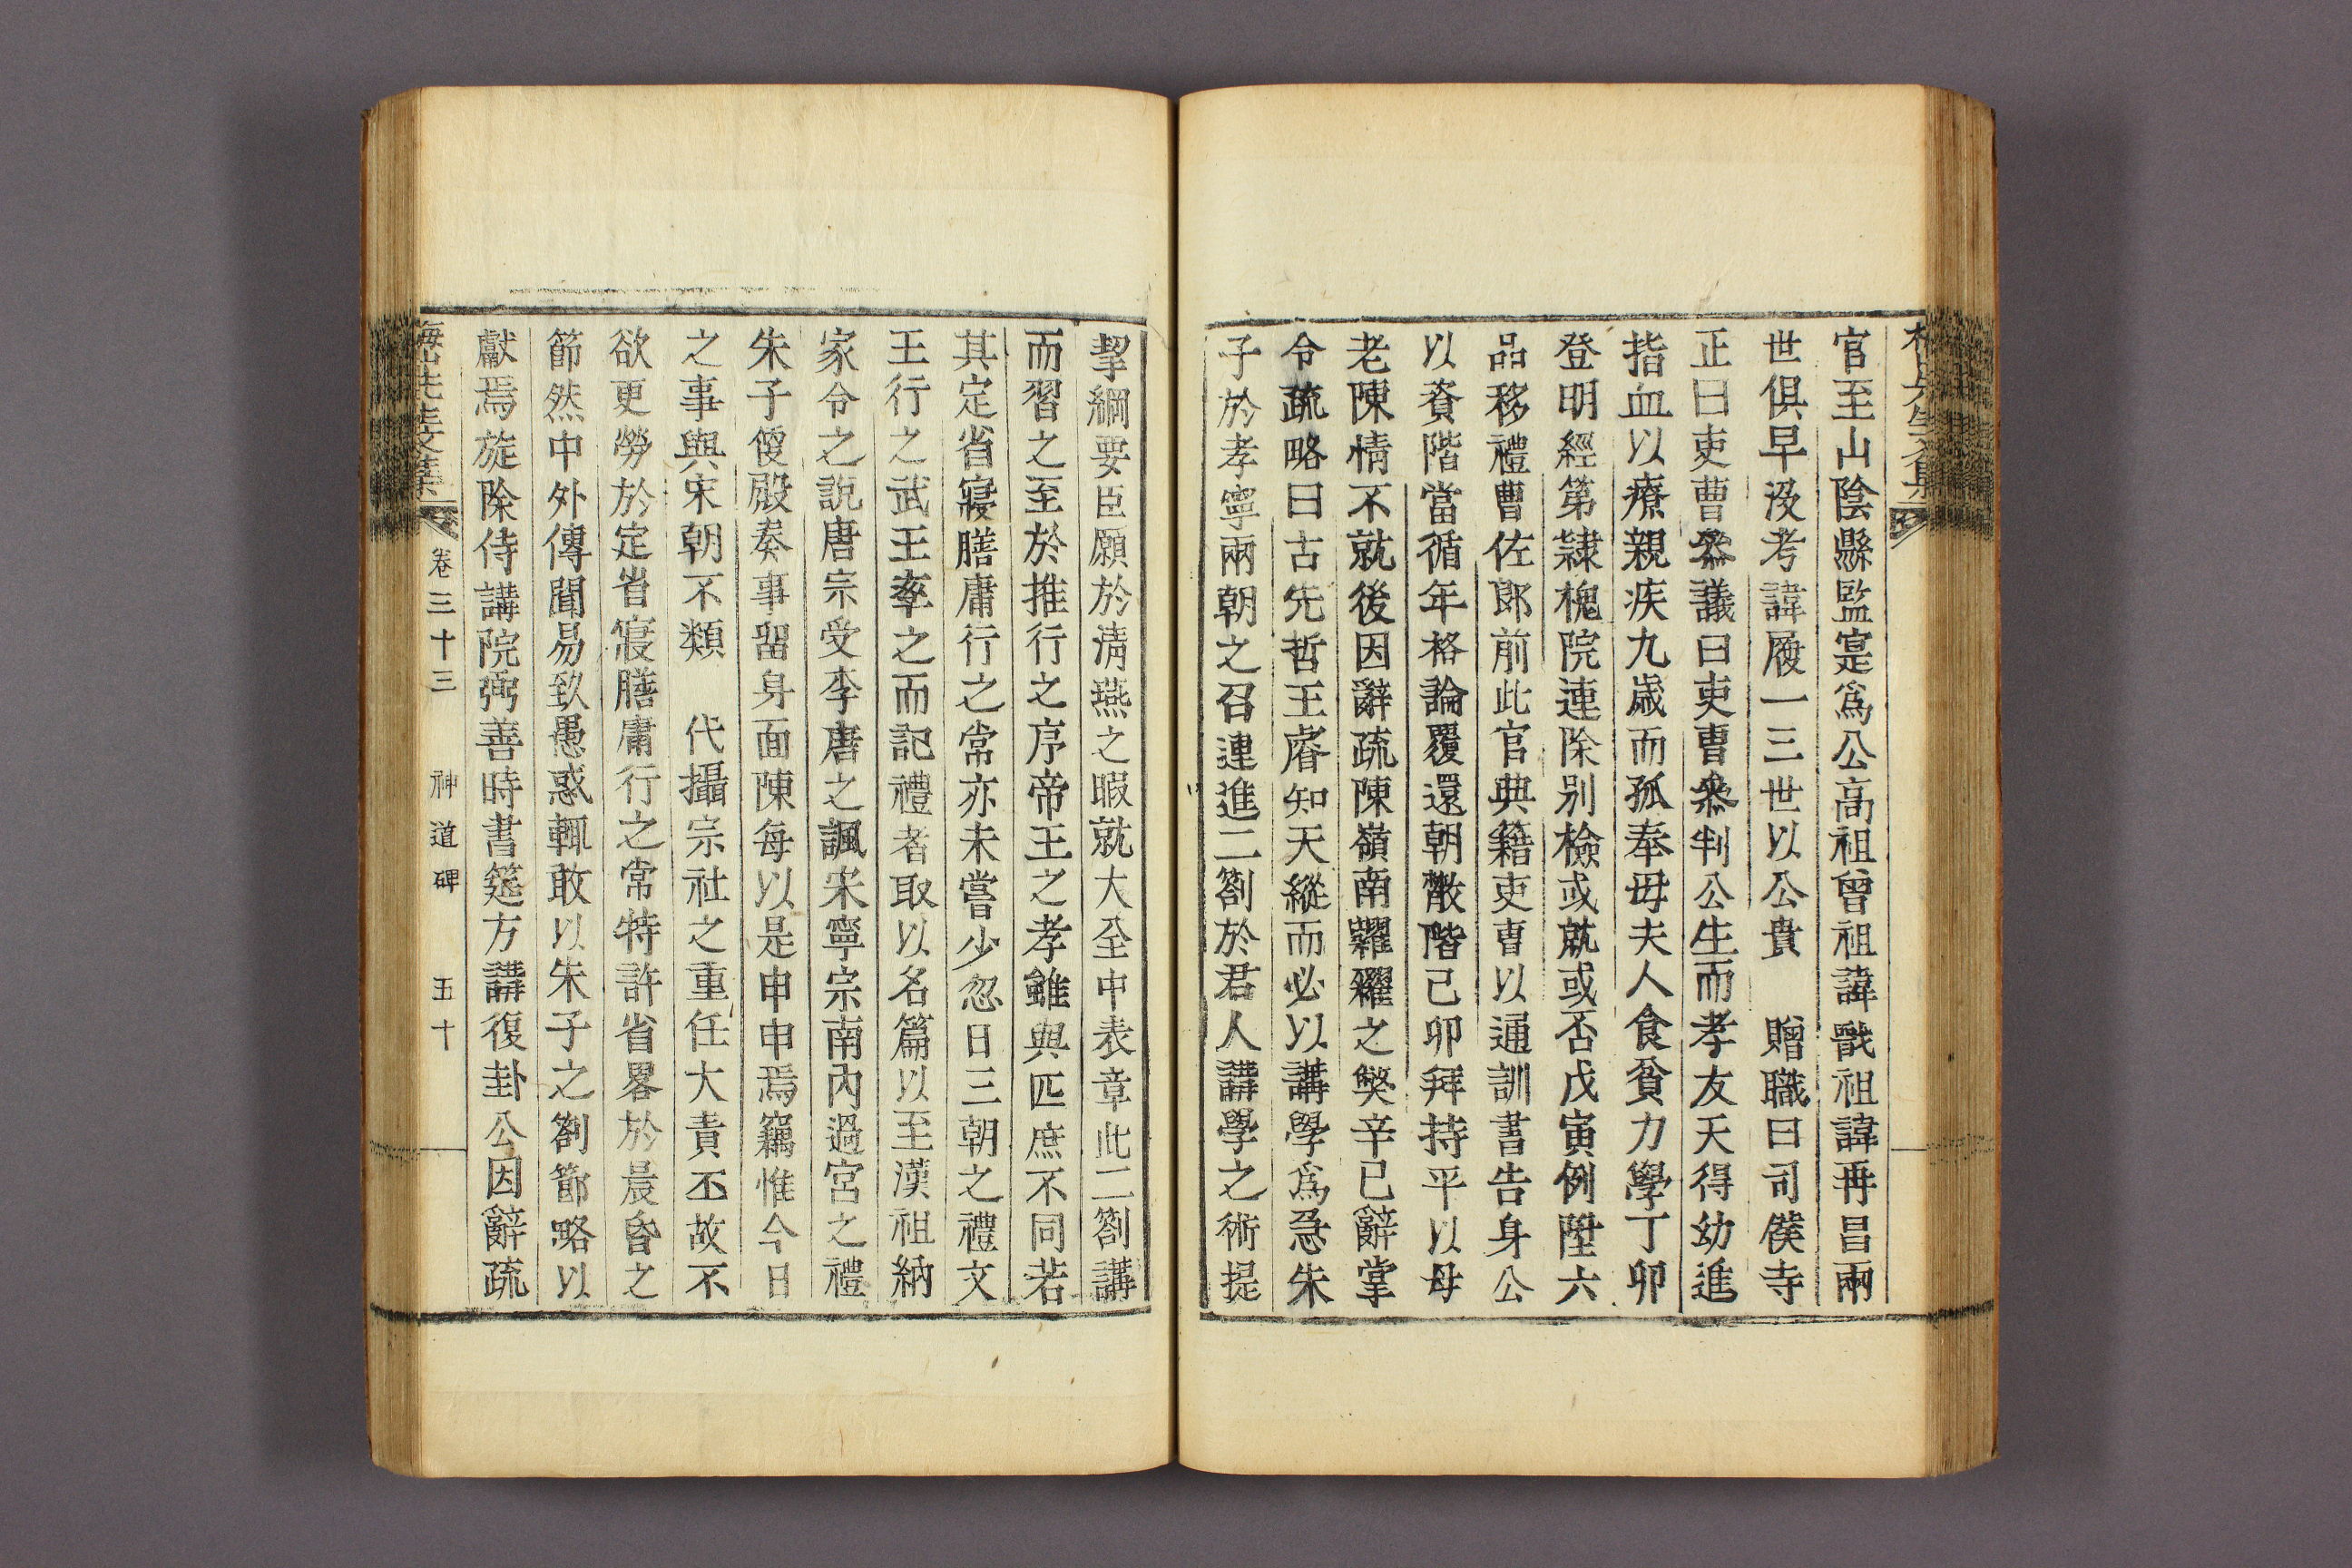 官至山陰縣監寔爲公高祖曾祖諱戩祖諱再昌兩
世俱早沒考諱履一三世以公貴　贈職曰司僕寺
正曰吏曹叅議曰吏曹叅判公生而孝友天得幼進
指血以療親疾九歲而孤奉母夫人食貧力學丁卯
登明經第隷槐院連除別檢或就或否戊寅例陞六
品移禮曹佐郎前此官典籍吏曹以通訓書告身公
以資階當循年格論覆還朝散階己卯拜持平以母
老陳情不就後因辭疏陳嶺南糶糴之獘辛巳辭掌
令疏略曰古先哲王睿知天縱而必以講學爲急朱
子於孝寧兩朝之召連進二劄於君人講學之術提
挈綱要臣願於淸燕之暇就大全中表章此二劄講
而習之至於推行之序帝王之孝雖與匹庶不同若
其定省寢膳庸行之常亦未嘗少忽日三朝之禮文
王行之武王率之而記禮者取以名篇以至漢祖納
家令之說唐宗受李唐之諷宋寧宗南內過宮之禮
朱子便殿奏事留身面陳每以是申申焉竊惟今日
之事與宋朝不類　代攝宗社之重任大責丕故不
欲更勞於定省寢膳庸行之常特許省畧於晨昏之
節然中外傳聞易致愚惑輒敢以朱子之劄節略以
獻焉旋除侍講院弼善時書筵方講復卦公因辭疏
海山先生文集　卷三十三　神道碑　五十